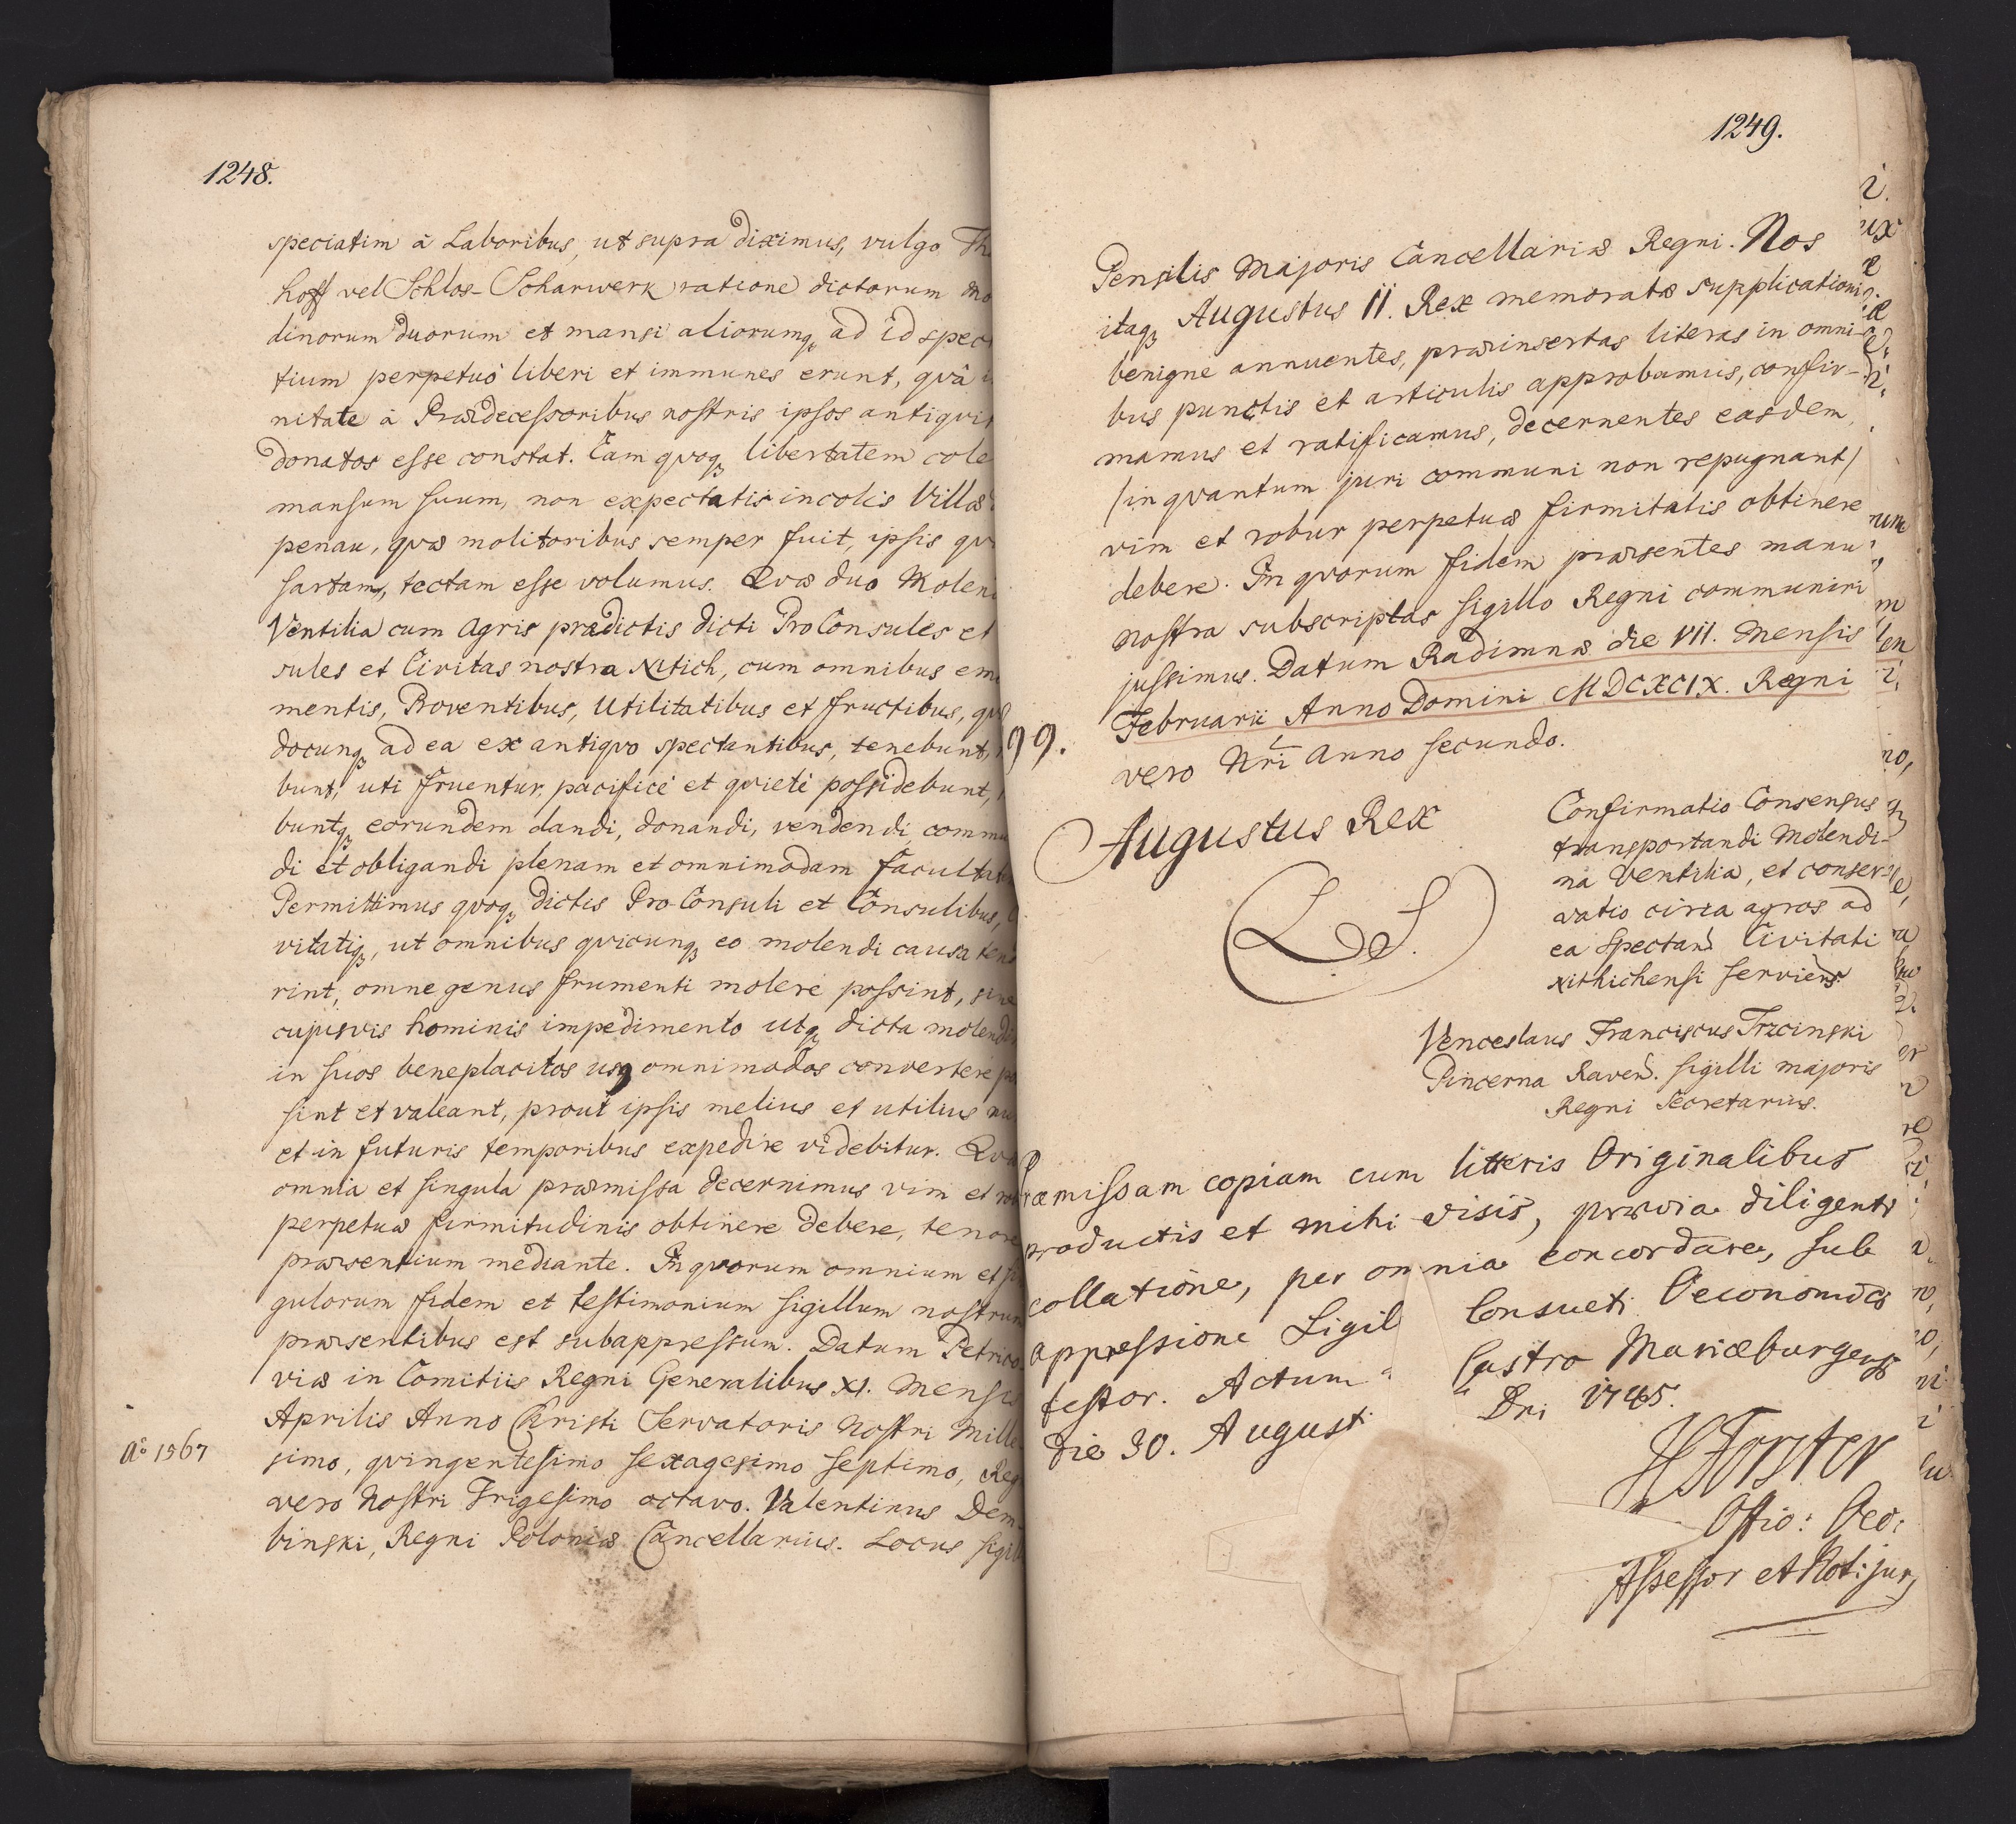 1248.
speciatim à Laboribus, ut supra diximus, vulgo Th
hoff vel Schlos-Scharwerk ratione dictorum mo
dinorum duorum et mansi aliorumq, ad id spec
tium perpetuò liberi et immunes erunt, quâ
nitate à Prædecessoribus nostris ipsos antiqui
donatos esse constat. Eam quoq libertatem cole
mansum suum, non expectatis incolis Villæ
penau, quæ molitoribus semper fuit, ipsis qu
sartam, tectam esse volumus. Quæ duo Molen
Ventilia cum Agris prædictis dicti ProConsules et
sules et Civitas nostra Nitich, cum omnibus em
mentis, Proventibus, Utilitatibus et fructibus, qu
docunq ad ea ex antiquo spectantibus, tenebunt,
bunt, uti fruentur, pacificè et quietè possidebunt,
buntq eorundem dandi, donandi, vendendi commu
di et obligandi plenam et omnimodam facultat
Permittimus quoq dictis Pro-Consuli et Consulibus,
vitatiq, ut omnibus quicunq eo molendi causa ten
rint, omne genus frumenti molere possint, sine
cujusvis hominis impedimento utq dicta molendi
in suos beneplacitos usq omnimodos convertere po
sint et valeant, prout ipsis melius et utilius nu
et in futuris temporibus expedire videbitur. Quæ
omnia et singula præmissa decernimus vim et rob
perpetuæ firmitudinis obtinere debere, tenore
præsentium mediante. In quorum omnium et si
gulorum fidem et testimonium sigillum nostrum
præsentibus est subappressum. Datum Petrico
viæ in Comitiis Regni Generalibus XI. Mensis
Aprilis Anno Christi Servatoris Nostri Mille
Aô 1567
simo, quingentesimo sexagesimo septimo, Reg
vero Nostri Trigesimo octavo. Valentinus Dem-
binski, Regni Poloniæ Cancellarius. Locus sigill
1249.
Pensilis Majoris Cancellariæ Regni. Nos
itaq Augustus II. Rex memoratæ supplicationi
benigne annuentes, præinsertas literas in omni-
bus punctis et articulis approbamus, confir-
mamus et ratificamus, decernentes easdem,
/in quantum juri communi non repugnant/
vim et robur perpetuæ firmitatis obtinere
debere. In quorum fidem præsentes manu
nostra subscriptas sigillo Regni communiri
jussimus. Datum Radimnæ die VII. Mensis
Februarii Anno Domini MDCXCIX. Regni
99.
vero Nri Anno secundo.
Augustus Rex
L. S.
Confirmatio Consensus
transportandi Molendi-
na Ventilia, et conser-
vatio circa agros ad
ea spectand Civitati
Nithichensi serviens.
Venceslaus Franciscus Trzcinski
Pincerna Raven. sigilli majoris
Regni Secretarius.
Præmissam copiam cum litteris Originalibus
productis et mihi visis, prævia diligenti
collatione, per omnia concordare, sub
appressione Sigil Consueti Oeconomiæ
testor. Actum Castro Mariæburgensi
die 30. August Dni 1745.
Forster
Offic: Oec:
Assessor et Not: jur,